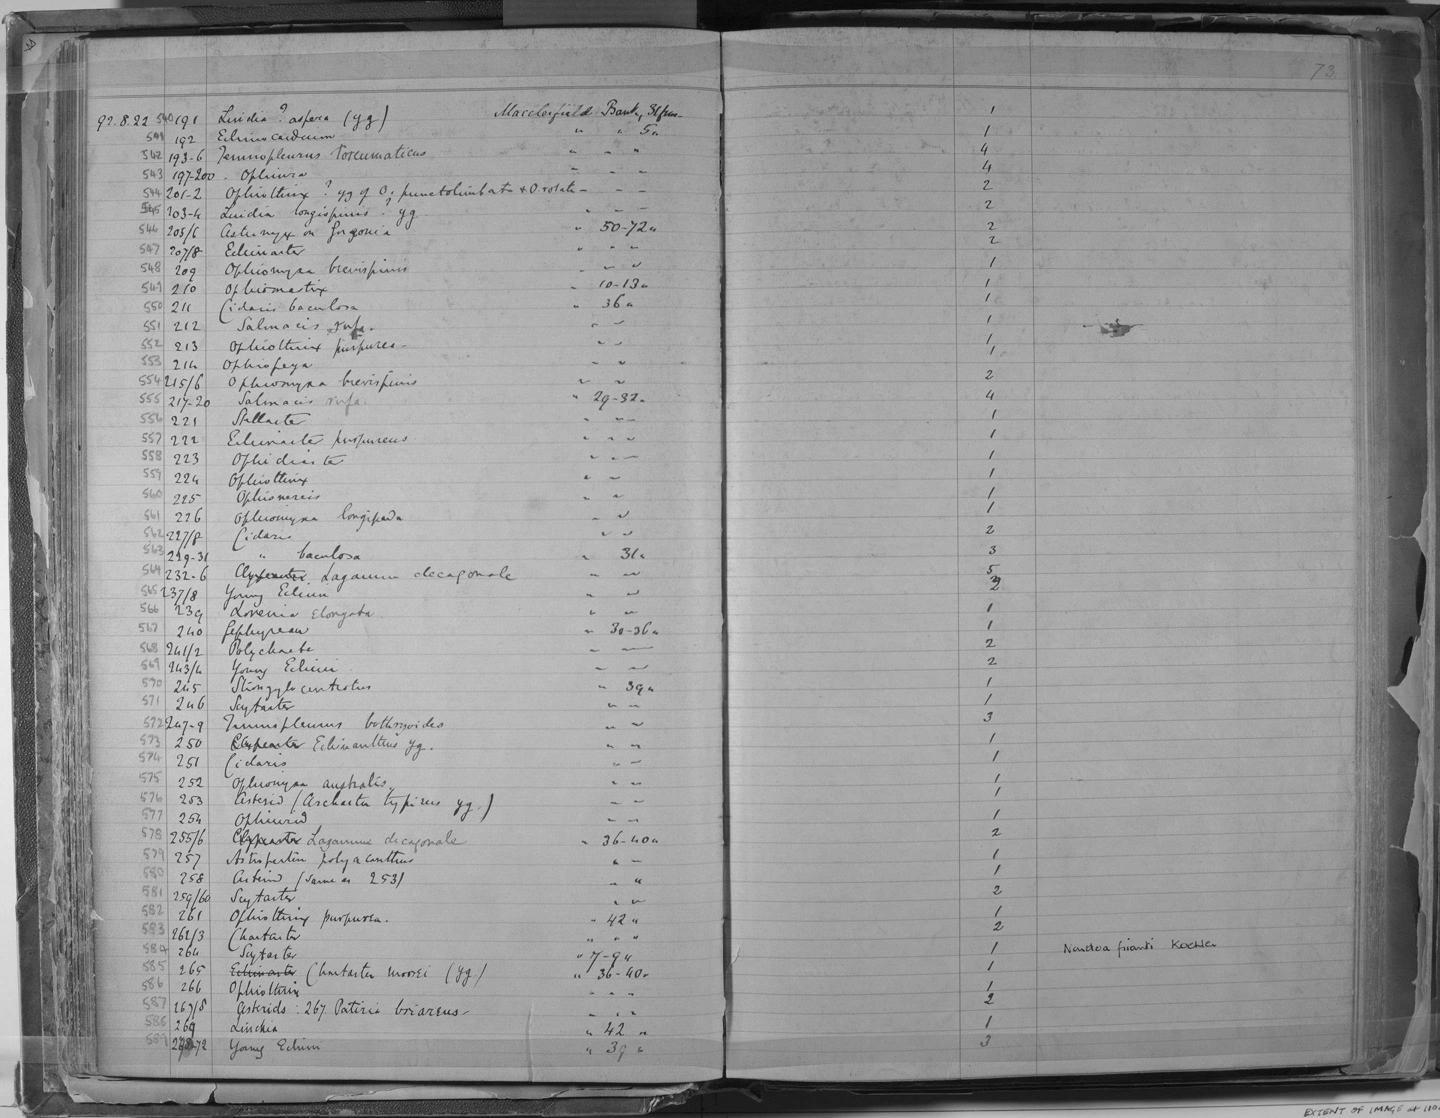 73
92.8.22 540 191 Luidia ? aspera (yg) Macclesfield Bank, 31 fms. 1
541 192 Echinocardium " " 5" 1
542 193-6 Temnopleurus toreumaticus " " " 4
543 197-200 Ophiura " - - 4
544 201-2 Ophiothrix ? yg of O. punctolimbata & O. rotata - - - 2
545 203-4 Luidia longispinis. yg. " - - 2
546 205/6 Astronyx on Gorgonia " 50-72" 2
547 207/8 Echinaster " " " 2
548 209 Ophiomyxa brevispinis " " 1
549 210 Ophiomastix " 10-13" 1
550 211 Cidaris baculosa " 36" 1
551 212 Salmacis rufa. " " 1
552 213 Ophiothrix purpurea - " " 1
553 214 Ophiopeza " " 1
554 215/6 Ophiomyxa brevispinis " " 2
555 217-20 Salmacis rufa. " 29-32" 4
556 221 Stellaster " " 1
557 222 Echinaster purpureus " " " 1
558 223 Ophidiaster " " 1
559 224 Ophiothrix " " 1
560 225 Ophionereis " " 1
561 226 Ophiomyxa longipeda " " 1
562 227/8 Cidaris " " 2
563 229-31 " baculosa " 31" 3
564 232-6 Clypeaster. Laganum decagonale " " 5
565 237/8 Young Echini " " 2
566 239 Lovenia elongata " " 1
567 240 Gephyrean " 30-36" 1
568 241/2 Polychaete " " 2
569 243/4 Young Echini " " 2
570 245 Strongylocentrotus " 39" 1
571 246 Scytaster " " 1
572 247-9 Temnopleurus bothryoides " " 3
573 250 Clypeaster Echinanthus yg. " " 1
574 251 Cidaris " " 1
575 252 Ophiomyxa australis. " " 1
576 253 Asterid (Archaster typicus yg.) " " 1
577 254 Ophiurid " " 1
578 255/6 Clypeaster Laganum decagonale " 36-40" 2
579 257 Astropecten polyacanthus " " 1
580 258 Asterid (same as 253) " " 1
581 259/60 Scytaster " " 2
582 261 Ophiothrix purpurea. " 42" 1
583 262/3 Chaetaster " " " 2
584 264 Scytaster " 7-9" 1 Nardoa frianti Koehler
585 265 Echinaster Chaetaster moorei (yg) " 36-40" 1
586 266 Ophiothrix " " " 1
587 267/8 Asterids : 267. Patiria briareus " " " 2
588 269 Linckia " 42 " 1
589 270-72 Young Echini " 39 " 3
EXTENT OF IMAGE at